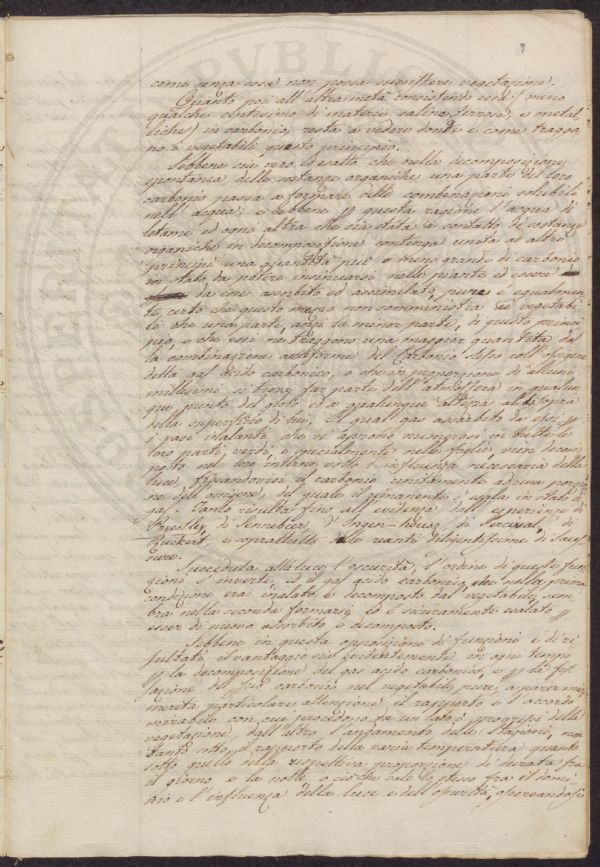 come senza essi non possa sussistere vegetazione.
Quanto poi all'altra metà consistendo essa (meno
qualche centesimo di materie saline, terrose, e metal-
liche) in carbonio, resta a vedere donde e come traggo-
no i vegetabili questo principio.
Sebbene sia vero ed esatto che nella decomposizione
spontanea delle sostanze organiche una parte del loro
carbonio passa a formare delle combinazioni solubili
nell'acqua; e sebbene per questa ragione l'acqua di
letame ed ogni altra che sia stata a contatto di sostanze
organiche in decomposizione contenga unita ad altri
principi una quantità più o meno grande di carbonio
in stato da potere insinuarsi nelle piante ed essere
da esse assorbito ed assimilato, pure è egualmen-
te certo che questo mezzo non somministra ai vegetabi-
li che una parte, anzi la minor parte, di questo princi-
pio, e che essi ne traggono una maggior quantità dal
la combinazione aeriforme del Carbonio stesso coll'ossigene
della gas acido carbonico, e che in proporzione di alcuni
millesimi si trova far parte dell'atmosfera in qualun-
que punto del globo ed a qualunque altezza al disopra
della superficie di lui. Il qual gas assorbito da essi per
i pori inalanti che si aprono numerosi in tutte le
loro parti verdi, e specialmente nelle foglie, vien decom-
posto nel loro interno sotto l'influenza necessaria della
luce, fissandovisi il carbonio unitamente ad una porzio-
ne dell'ossigene, del quale il rimanente si esala in stato di
gas. Tanto risulta fino all'evidenza dall'esperienze di
Priestley, di Sennebier, d'Ingen-housz, di Percival, di
Ruckert, e soprattutto dalle recenti diligentissime di Saus-
sure.
Succeduta alla luce l'oscurità, l'ordine di queste fun-
zioni s'inverte, ed il gas acido carbonico, che nella prima
condizione era inalato e decomposto dal vegetabile, sem-
bra nella seconda formarsi, ed è sicuramente esalato per
esser di nuovo assorbito e decomposto.
Sebbene in questa opposizione di funzioni e di ri-
sultati, il vantaggio sia evidentemente in ogni tempo
per la decomposizione del gas acido carbonico, e per la fis-
sazione del suo carbonio nel vegetabile, pure, a parer mio,
merita particolare attenzione il rapporto e l'accordo
mirabile con cui procedono da un lato i progressi della
vegetazione, dall'altro l'andamento delle stagioni, non
tanto sotto il rapporto della varia temperatura quanto
sotto quello della rispettiva proporzione di durata fra
il giorno e la notte, o ciò che vale lo stesso fra il domi-
nio e l'influenza della luce e dell'oscurità, operandosi